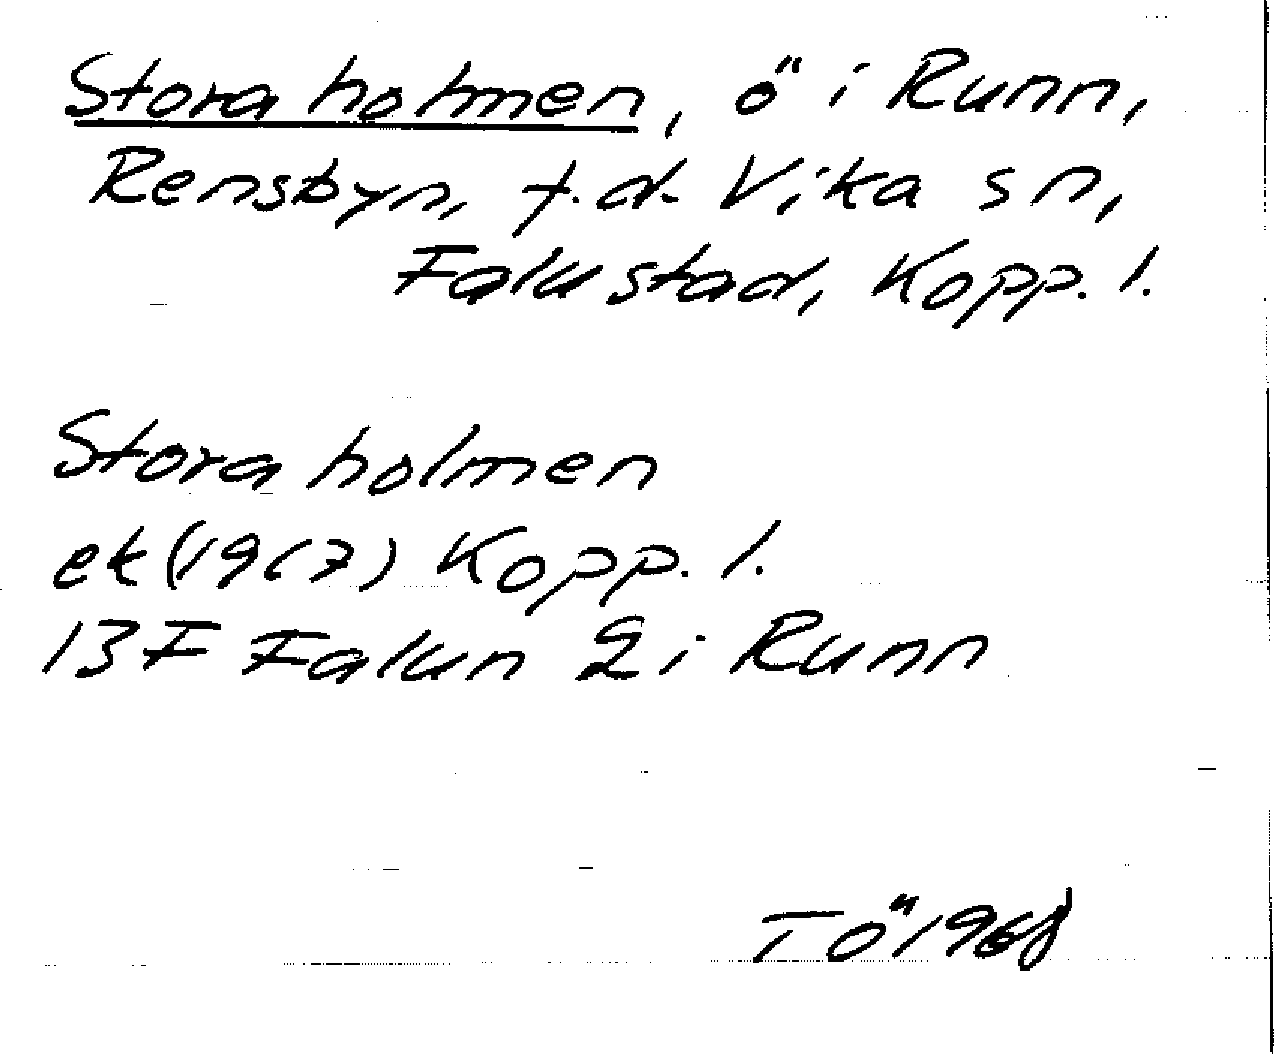 Stora holmen, ö i Runn,
Rensbyn, f.d. Vika sn,
Falu stad, Kopp. l.
Stora holmen
ek (1967) Kopp. l.
13F Falun 2i Runn
TÖ 1968